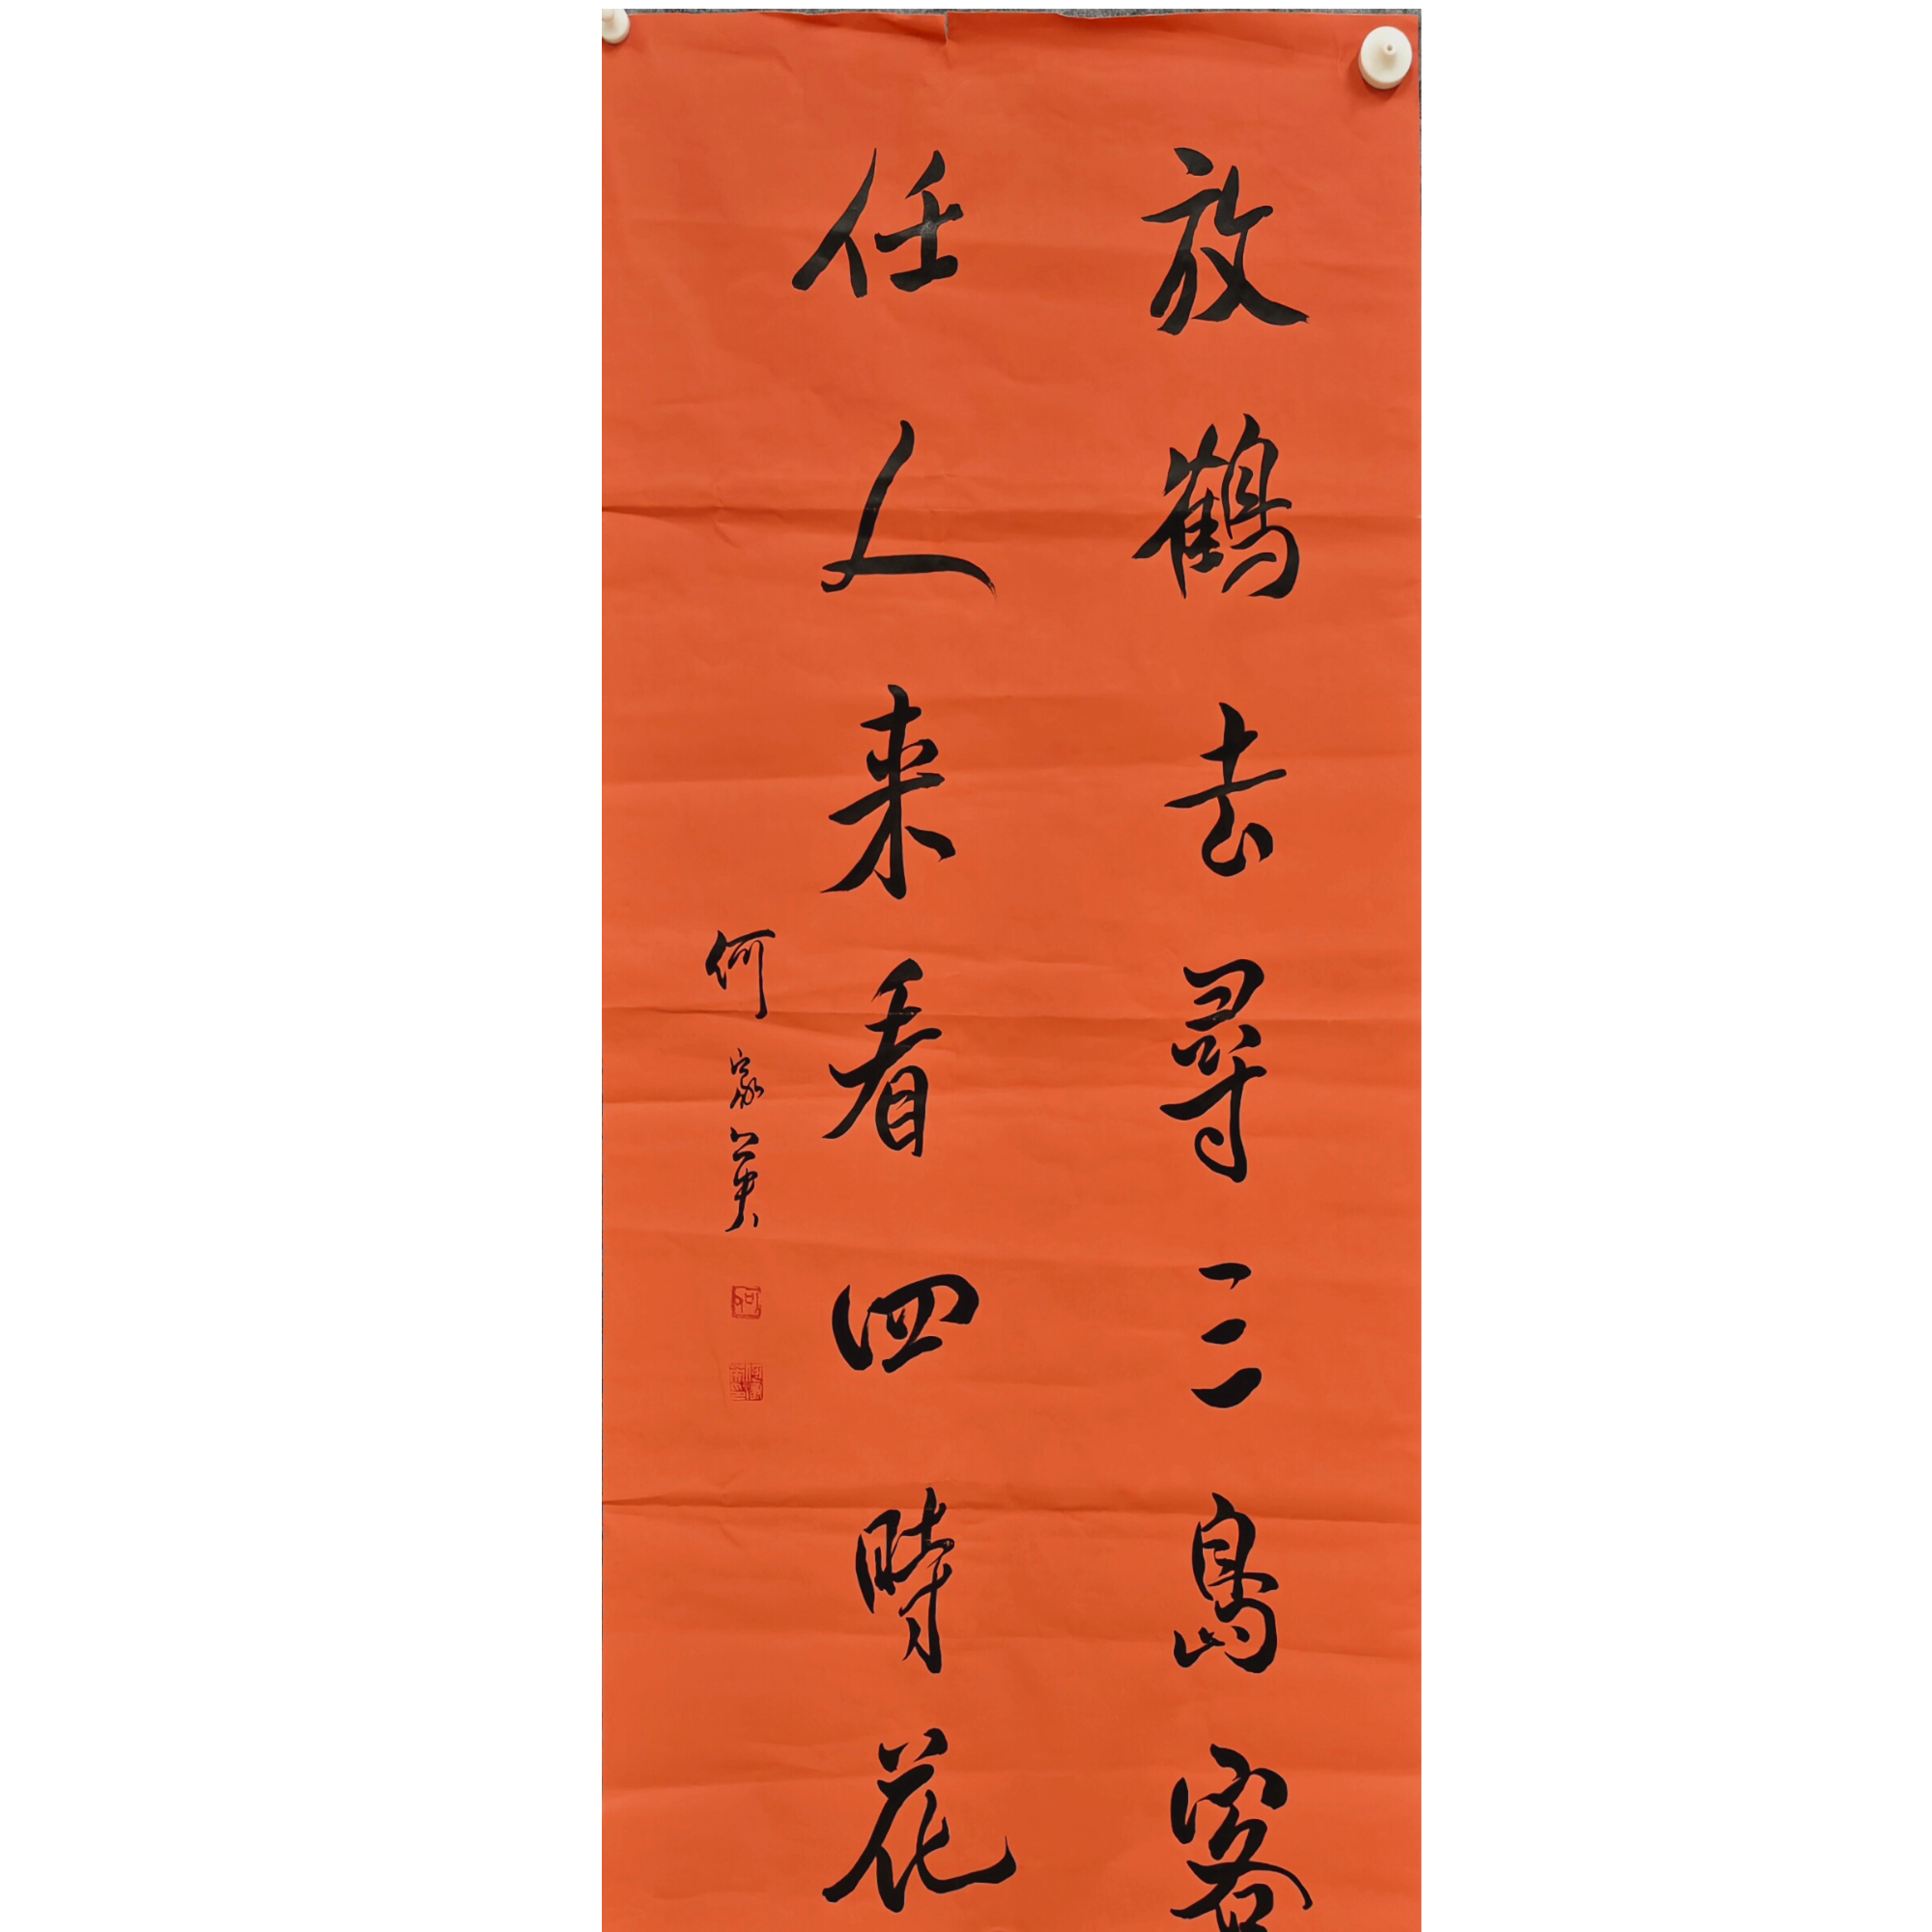 放鶴去尋三島客
任人来看四時花
何家英
何